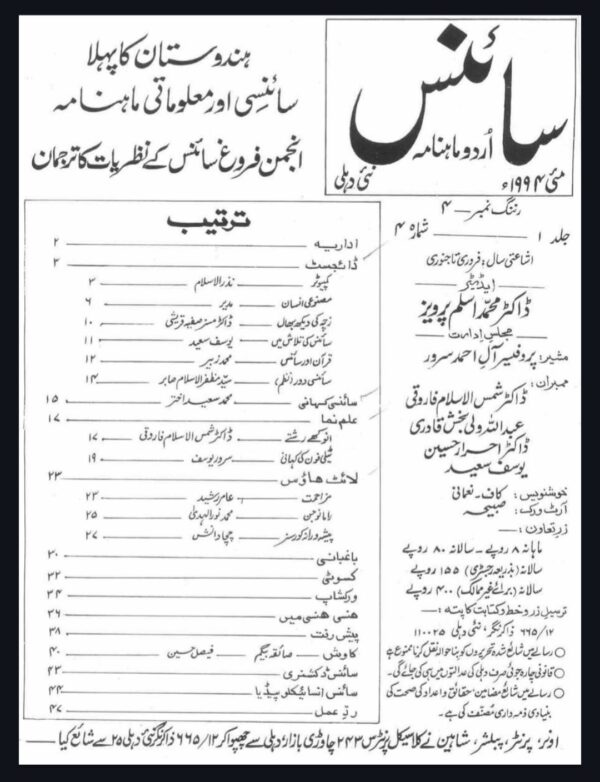 ہندوستان کا پہلا
سائنسی اور معلوماتی ماہنامہ
انجمن فروغ سائنس کے نظریات کا ترجمان
سائنس
اُردو ماہنامہ
مئی ۱۹۹۴ء نئی دہلی
رننگ نمبر — ۴
جلد ۱ — شمارہ ۴
اشاعتی سال: فروری تا جنوری
ایڈیٹر
ڈاکٹر محمد اسلم پرویز
مجلس ادارت
مشیر: پروفیسر آل احمد سرور
ممبران:
ڈاکٹر شمس الاسلام فاروقی
عبداللہ ولی بخش قادری
ڈاکٹر احرار حسین
یوسف سعید
خوشنویس: کاف۔ نعمانی
آرٹ ورک: صبیحہ
زر تعاون:—
ماہانہ ۸ روپے۔ سالانہ ۸۰ روپے
سالانہ (بذریعہ رجسٹری) ۱۵۵ روپے
سالانہ (برائے غیر ممالک) ۴۰۰ روپے
ترسیل زر و خط و کتابت کا پتہ:—
۶۶۵/۱۲ ذاکر نگر، نئی دہلی ۱۱۰۰۲۵
○ رسالے میں شائع شدہ تحریروں کو بنا حوالہ نقل کرنا ممنوع ہے
○ قانونی چارہ جوئی صرف دہلی کی عدالتوں میں ہی کی جائے گی۔
○ رسالے میں شائع مضامین، حقائق و اعداد کی صحت کی
بنیادی ذمہ داری مصنف کی ہے۔
ترتیب
اداریہ ۲
ڈائجسٹ ۳
کمپیوٹر — نذر الاسلام ۳
مصنوعی انسان — مدیر ۶
زچہ کی دیکھ بھال — ڈاکٹر مسز صفیہ قریشی ۱۰
سائنس کی تلاش میں — یوسف سعید ۱۱
قرآن اور سائنس — محمد زبیر ۱۲
سائنسی دور (نظم) — سید مظفر الاسلام صابر ۱۴
سائنسی کہانی — محمد سعید اختر ۱۵
علم نما ۱۷
انوکھے رشتے — ڈاکٹر شمس الاسلام فاروقی ۱۷
ٹیلی فون کی کہانی — سرور یوسف ۱۹
لائٹ ہاؤس ۲۳
مزاحمت — عامر رشید ۲۳
رامانوجن — محمد نور الہدیٰ ۲۵
پیشہ ورانہ کورسز — چچا دانش ۲۷
باغبانی ۳۰
کسوٹی ۳۲
ورکشاپ ۳۴
ہنسی ہنسی میں ۳۶
پیش رفت ۳۸
کاوش — صائقہ بیگم — فیصل حسین ۴۰
سائنس ڈکشنری ۴۳
سائنس انسائیکلوپیڈیا ۴۴
ردِ عمل ۴۷
اونر، پرنٹر، پبلشر، شاہین نے کلاسیکل پرنٹرس ۲۴۳ چاوڑی بازار، دہلی سے چھپوا کر ۶۶۵/۱۲ ذاکر نگر نئی دہلی ۲۵ سے شائع کیا—